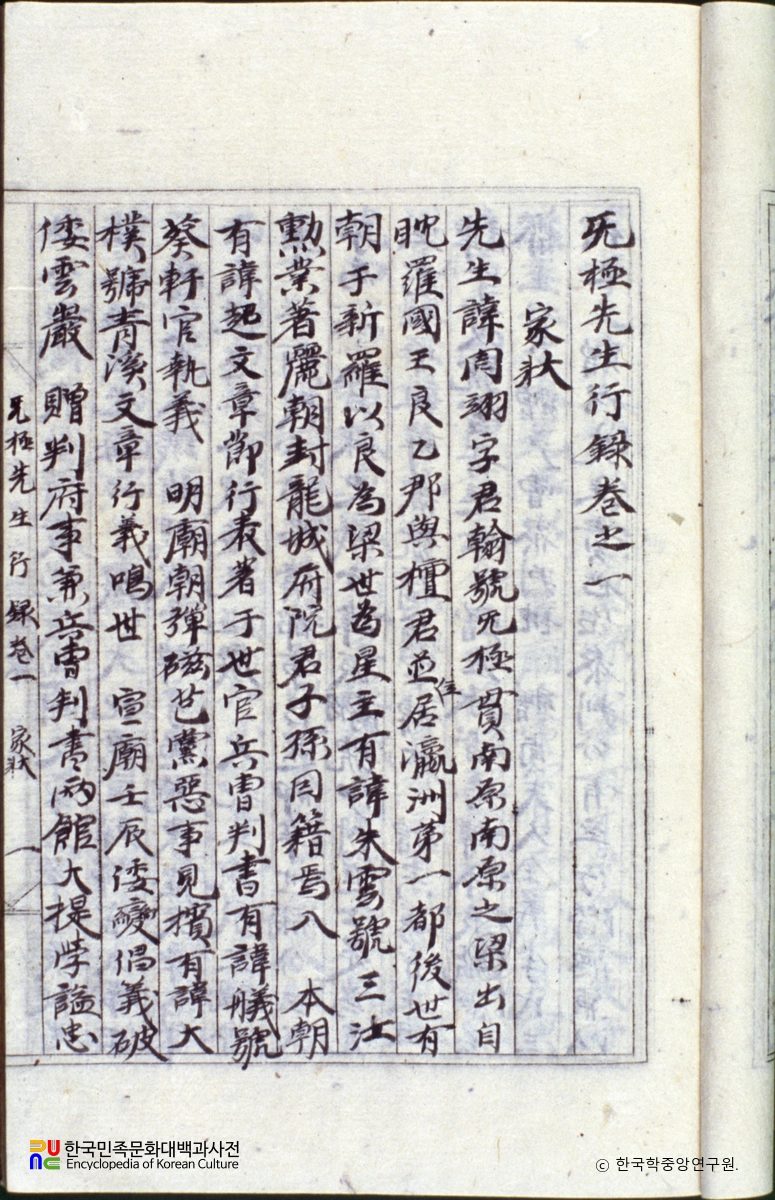 无極先生行録卷之一
家狀
先生諱周翊字君翰號无極貫南原南原之梁出自
眈羅國王良乙那與檀君並居瀛洲第一都後世有
住
朝于新羅以良為梁世為星主有諱朱雲號三江
勲業著麗朝封龍城府院君子孫因籍焉入 本朝
有諱起文章節行最著于世官兵曺判書有諱艤號
葵軒官執義 明廟朝彈磁芑黨惡事見擯有諱大
樸號靑溪文章行義鳴世 宣廟壬辰倭變倡義破
倭雲巖 贈判府事兼兵曺判書兩館大提學諡忠
无極先生行録卷一 家狀 一
한국민족문화대백과사전
Encyclopedia of Korean Culture
© 한국학중앙연구원.